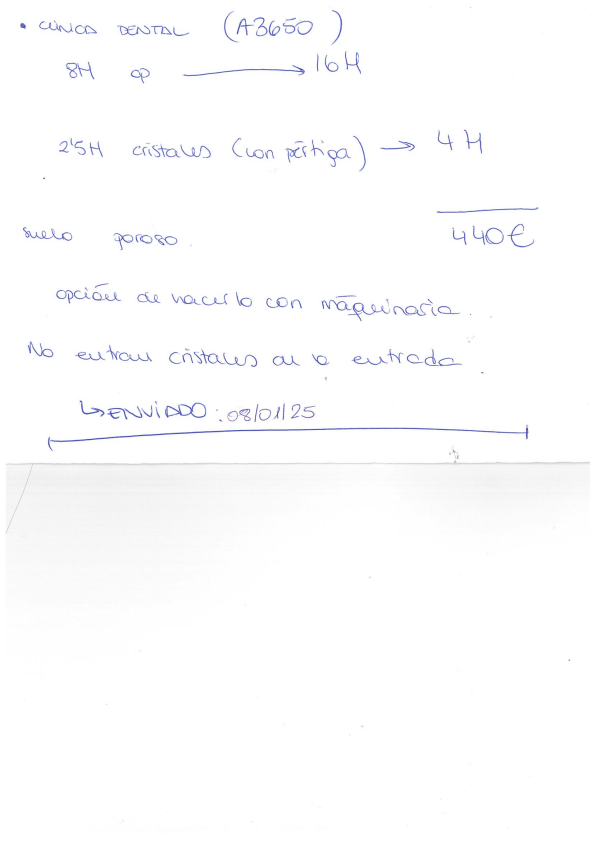 • CLINICA DENTAL (A3650)
8H op → 16H
2'5H cristales (con pértiga) → 4H
suelo poroso. 440€
opción de hacerlo con máquinaria.
No entran cristales de la entrada.
↳ ENVIADO: 08/01/25